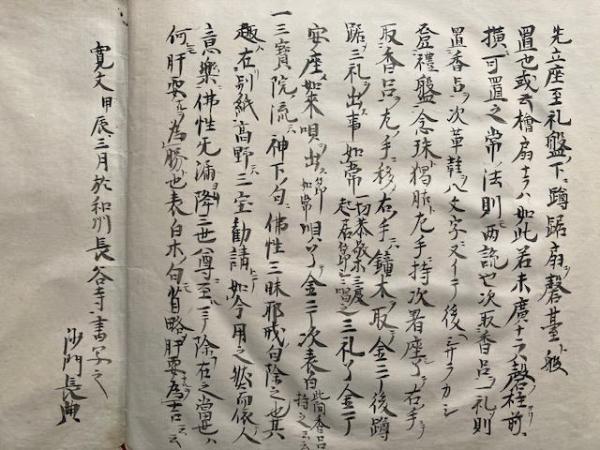 先立座至礼盤下蹲踞扇磬臺般
置也或云檜扇ナラハ如此若末廣ナラハ磬柱前
横可置之常法則両説也次取香呂一礼則
置香呂次草鞋八文字ヌイテ後ヘヲシ
登禮盤念珠独胋左手持次着座了右手
取香呂左手移右手鐘木取金三丁後蹲
踞三礼出事如常一切恭敬第三度起居之唱之三礼了金丁
安座如来唄出如常唄了金二丁次表白此間香呂持之云云
一三寳院流神下句佛性三昧耶戒句除之也其
趣在別紙高野三宝勧請如今用之然而依人
意樂佛性先満降三世尊至三丁除在之當也
何肝要為勝也表白木句省略肝要為吉云云
寛文甲辰三月於和刕長谷寺書写之
沙門長典